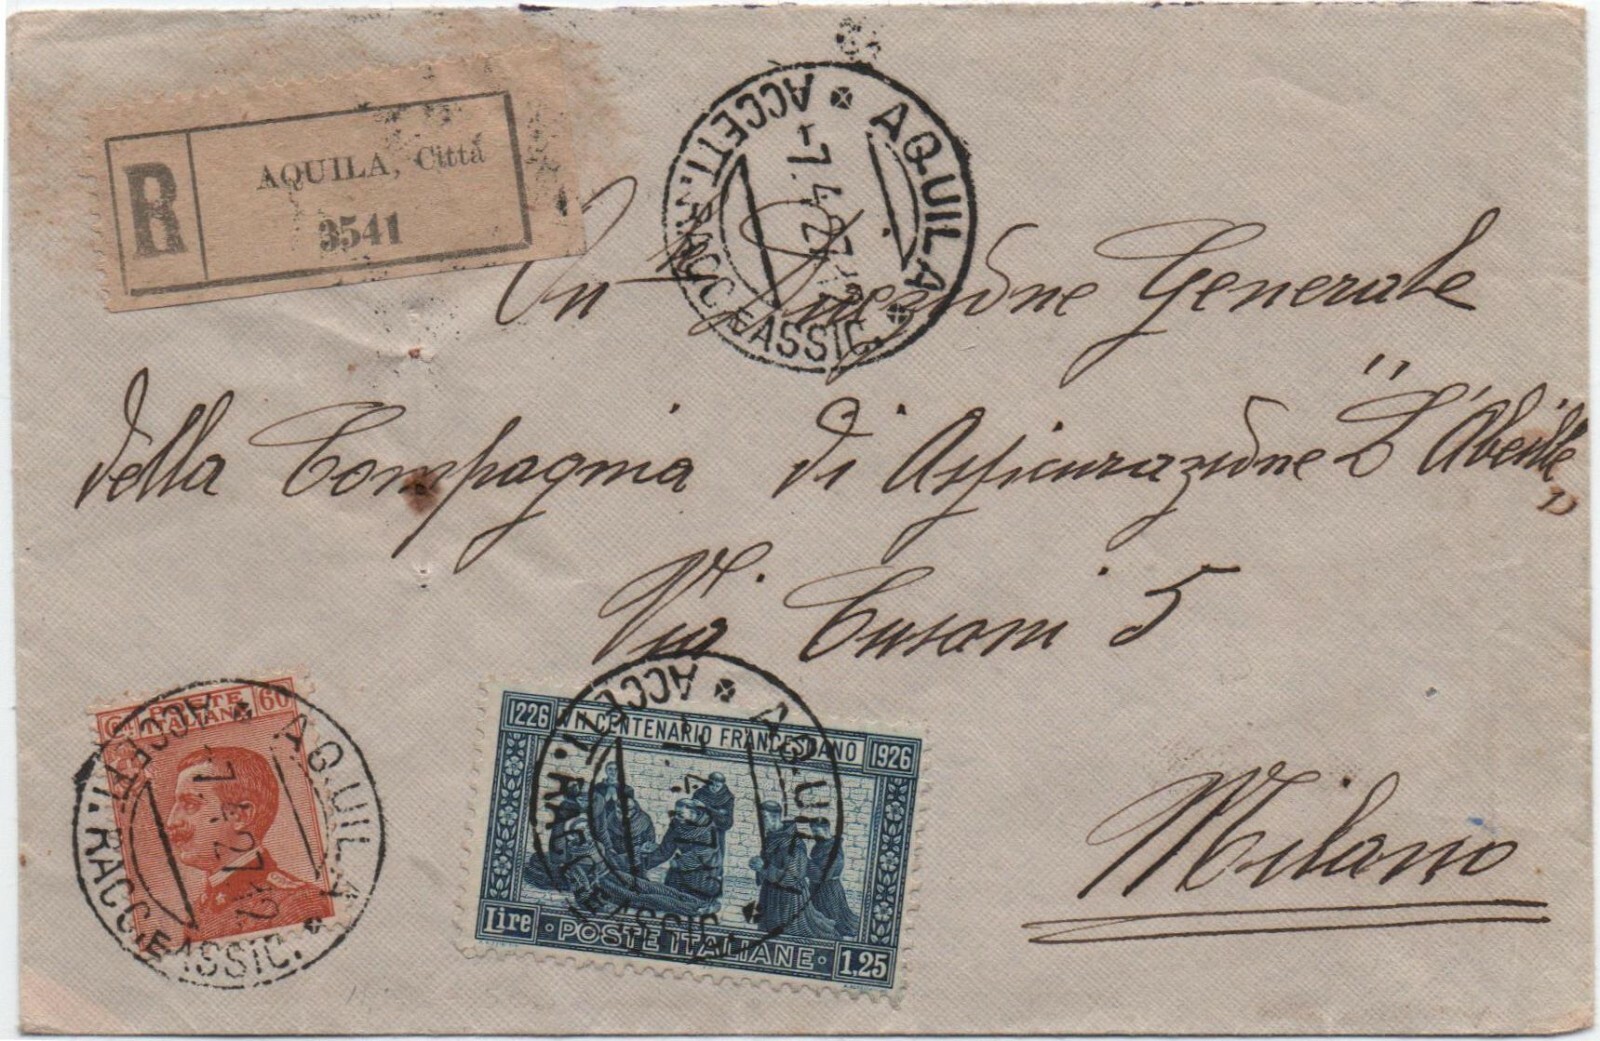 R
AQUILA, Città
3541
AQUILA
ACCETT. RACC. E ASSIC.
-7.4.27.12
On Direzione Generale
della Compagnia di Assicurazione "L'Abeille"
Via Cusani 5
Milano
Cmi POSTE ITALIANE 60
AQUILA
ACCETT. RACC. E ASSIC.
-7.4.27.12
1226 VII CENTENARIO FRANCESCANO 1926
Lire POSTE ITALIANE 1.25
AQUILA
ACCETT. RACC. E ASSIC.